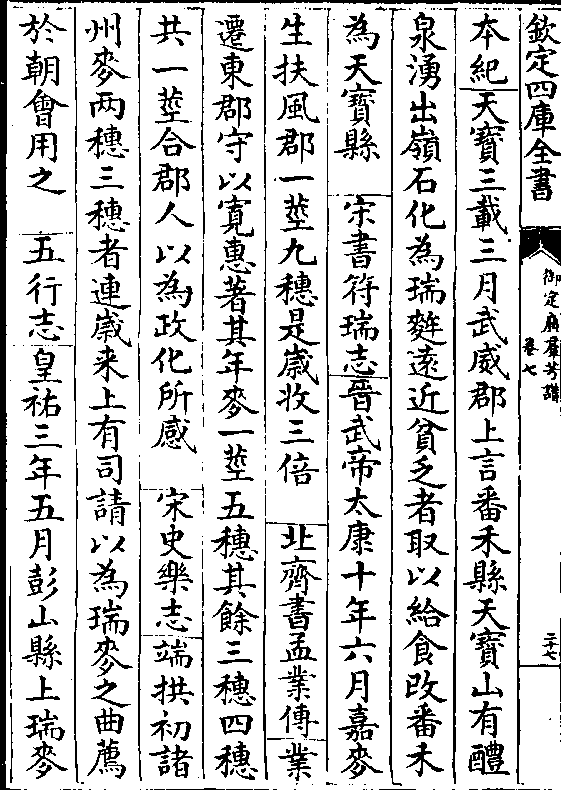 欽定四庫全書
御定廣羣芳譜
卷七
三十七
本紀天寶三載三月武威郡上言番禾縣天寶山有醴
泉湧出嶺石化為瑞麰遠近貧乏者取以給食改番禾
為天寶縣 宋書符瑞志晉武帝太康十年六月嘉麥
生扶風郡一莖九穗是歲收三倍 北齊書孟業傳業
遷東郡守以寬惠著其年麥一莖五穗其餘三穗四穗
共一莖合郡人以為政化所感 宋史樂志端拱初諸
州麥两穗三穗者連歲来上有司請以為瑞麥之曲薦
於朝會用之 五行志皇祐三年五月彭山縣上瑞麥